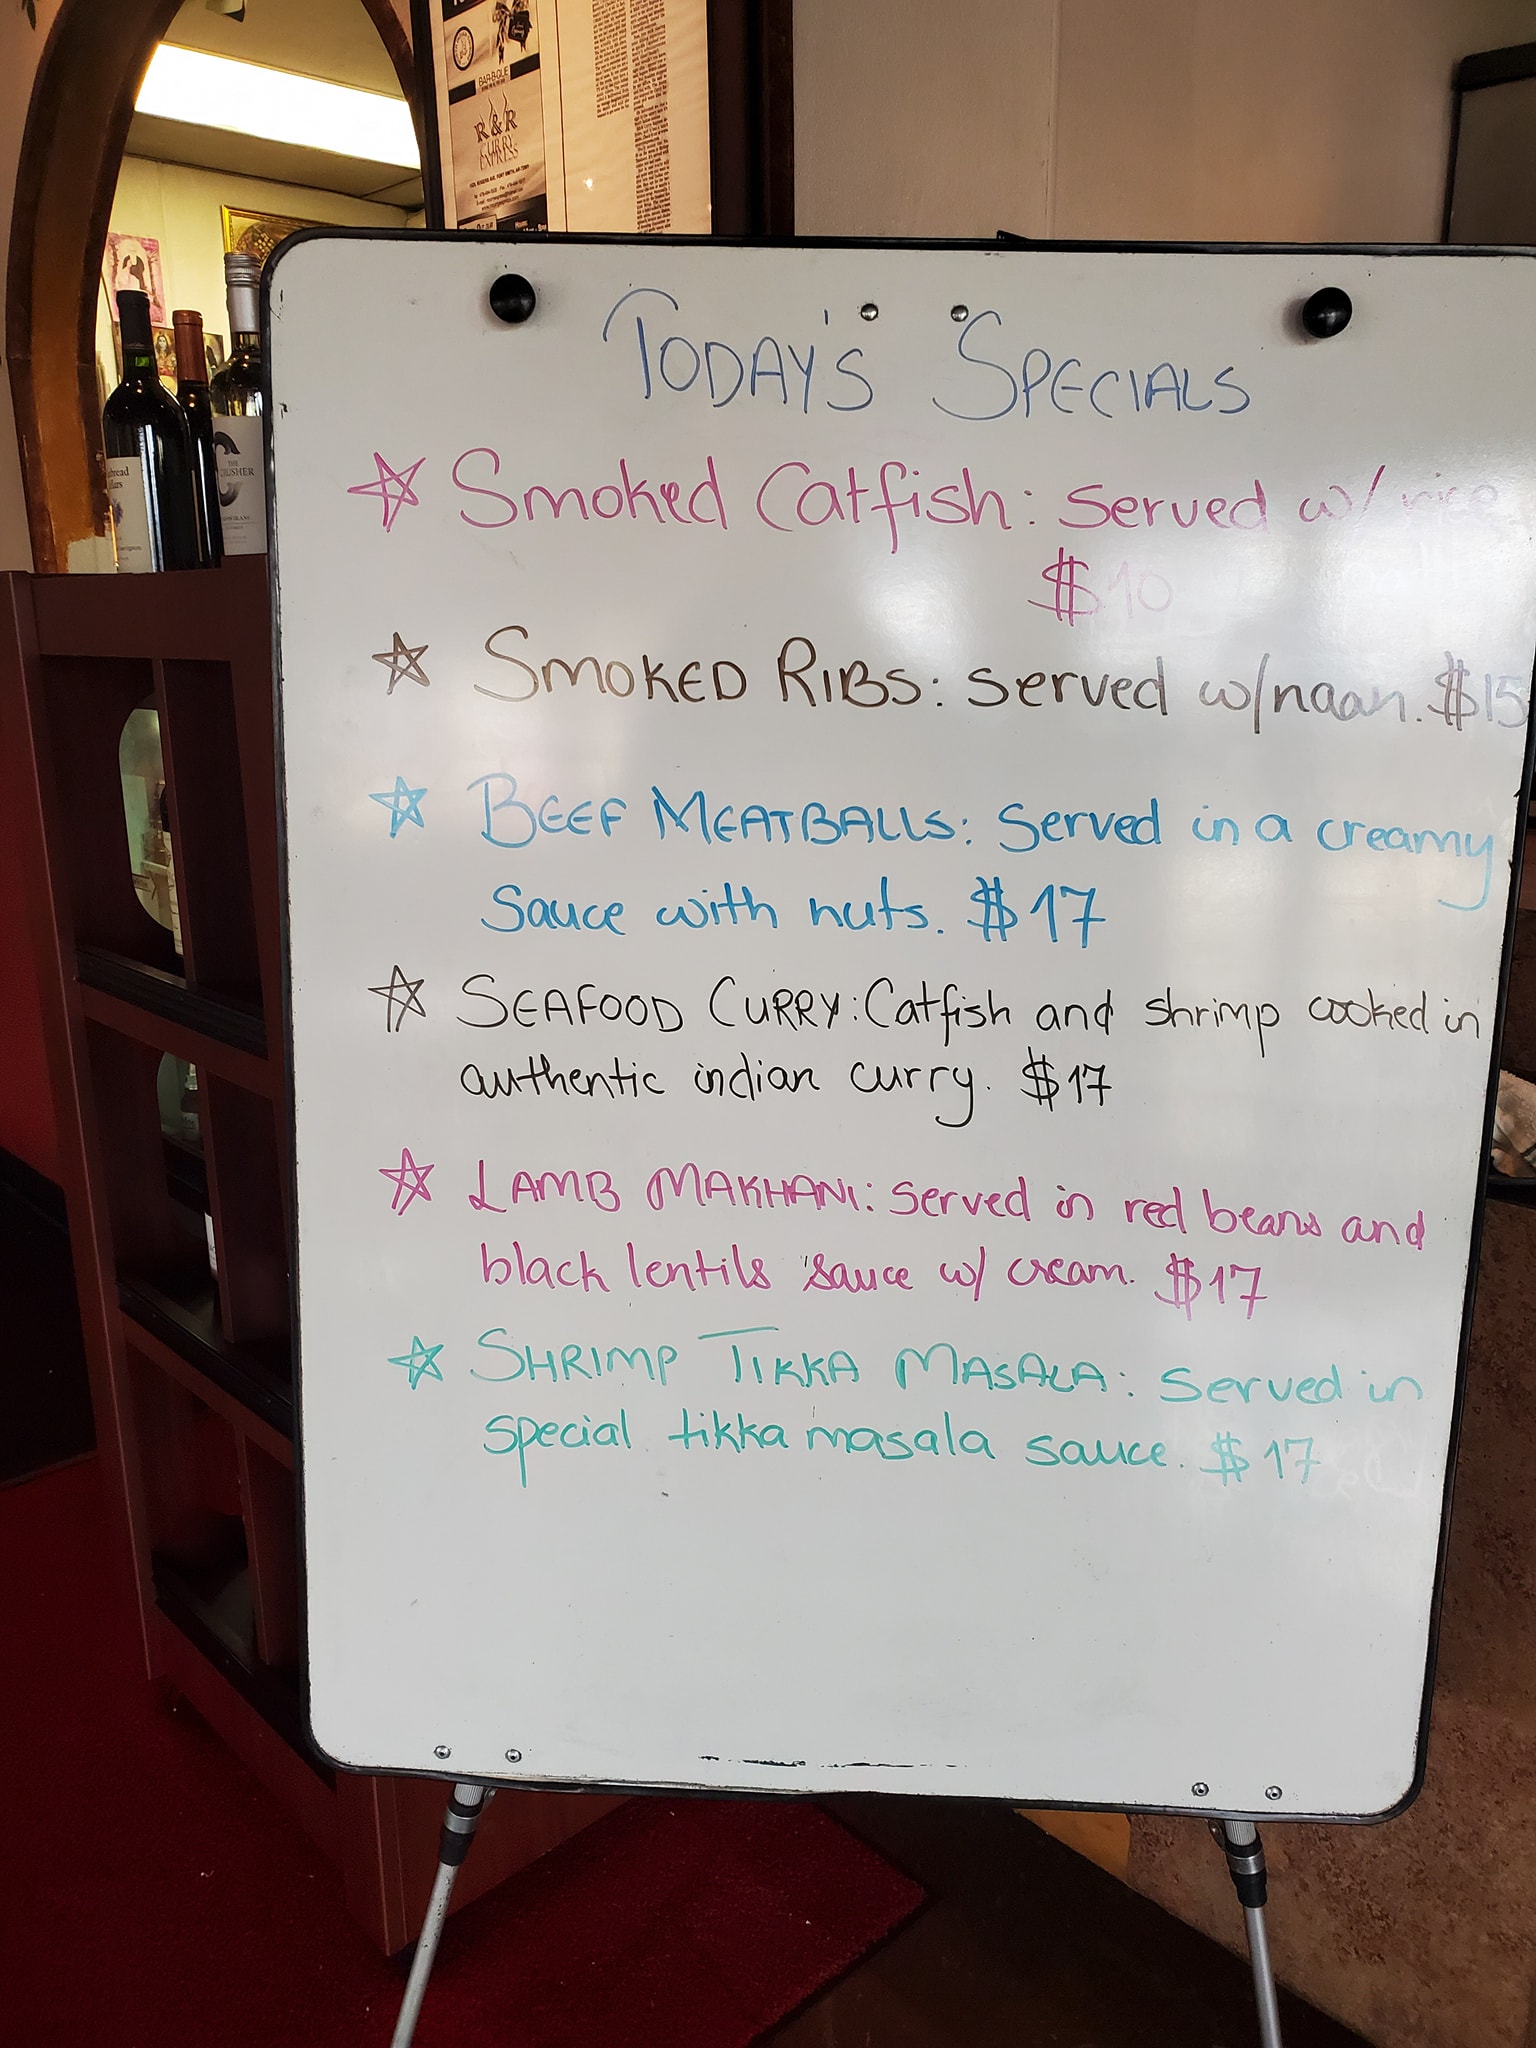 BAR-B-QUE
R&R
CURRY
EXPRESS
TODAY'S SPECIALS
Smoked Catfish: served w/ rice
$10
SMOKED RIBS: served w/naan. $15
BEEF MEATBALLS: served in a creamy
sauce with nuts. $17
SEAFOOD CURRY: Catfish and shrimp cooked in
authentic indian curry. $17
LAMB MAKHANI: served in red beans and
black lentils sauce w/ cream. $17
SHRIMP TIKKA MASALA: served in
special tikka masala sauce. $17
THE
CRUSHER